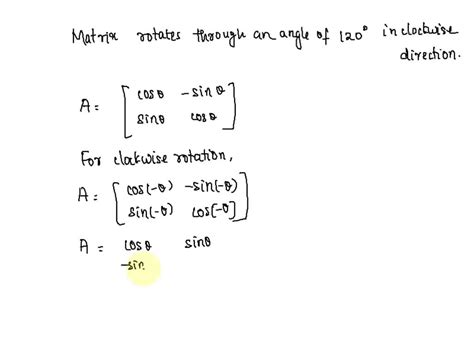 Matrix rotates through an angle of 120° in clockwise
direction.
A = [ cosθ -sinθ
sinθ cosθ ]
For clockwise rotation,
A = [ cos(-θ) -sin(-θ)
sin(-θ) cos(-θ ]
A = cosθ sinθ
-sin